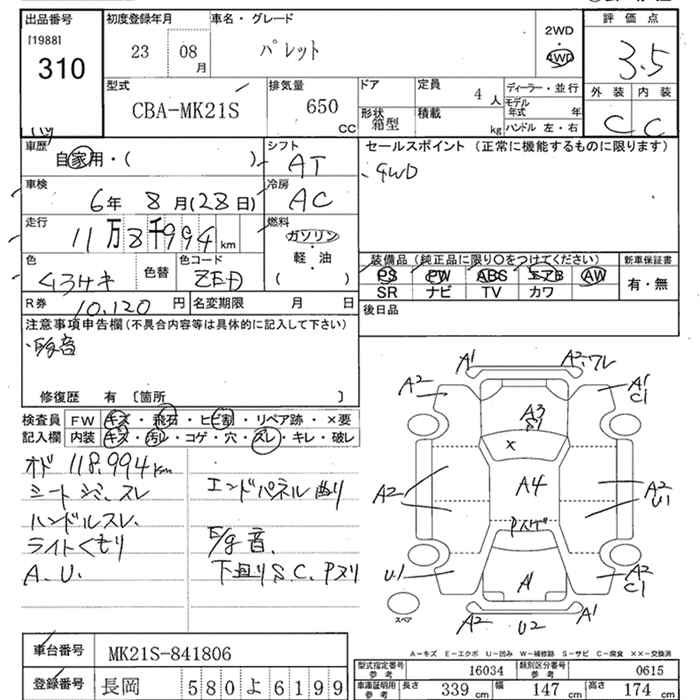 出品番号 初度登録年月 車名・グレード 評価点
[1988] 23 08 月 パレット 2WD 4WD 3.5
310
外装 内装
型式 排気量 ドア 定員 4 人 ディーラー・並行
CBA-MK21S 650 CC 形状 箱型 積載 kg モデル年式 年 C C
ハンドル 左・右
車歴 自家用・( ) シフト AT セールスポイント (正常に機能するものに限ります)
・4WD
車検 6年 8月(28日) 冷房 AC
走行 11万8千994km 燃料 ガソリン・軽油 ( )
装備品 (純正品に限り○をつけてください) 新車保証書
色 ムラサキ 色替 色コード ZED PS PW ABS エアB AW 有・無
SR ナビ TV カワ
R券 10,120 円 名変期限 月 日 後日品
注意事項申告欄 (不具合内容等は具体的に記入して下さい)
修復歴 有 〔箇所 〕
検査員 FW キズ・飛石・ヒビ割・リペア跡・×要
記入欄 内装 キズ・汚レ・コゲ・穴・スレ・キレ・破レ
オド 118,994km
シートシミ、スレ エンドパネル曲り
ハンドルスレ、
ライトくもり
A.U. 下回りS.C、Pヌリ
A1 A2、ワレ
A2 A1 C1
A3 S1
×
A2 A4 A2 U1
Pハゲ
U1 A1 A2 C1
スペア A2 U2 A1
A-キズ E-エクボ U-凹み W-補修跡 S-サビ C-腐食 ××-交換済
車台番号 MK21S-841806 型式指定番号 参考 16034 類別区分番号 参考 0615
登録番号 長岡 580よ6199 車庫証明用 参考 長さ 339 cm 幅 147 cm 高さ 174 cm